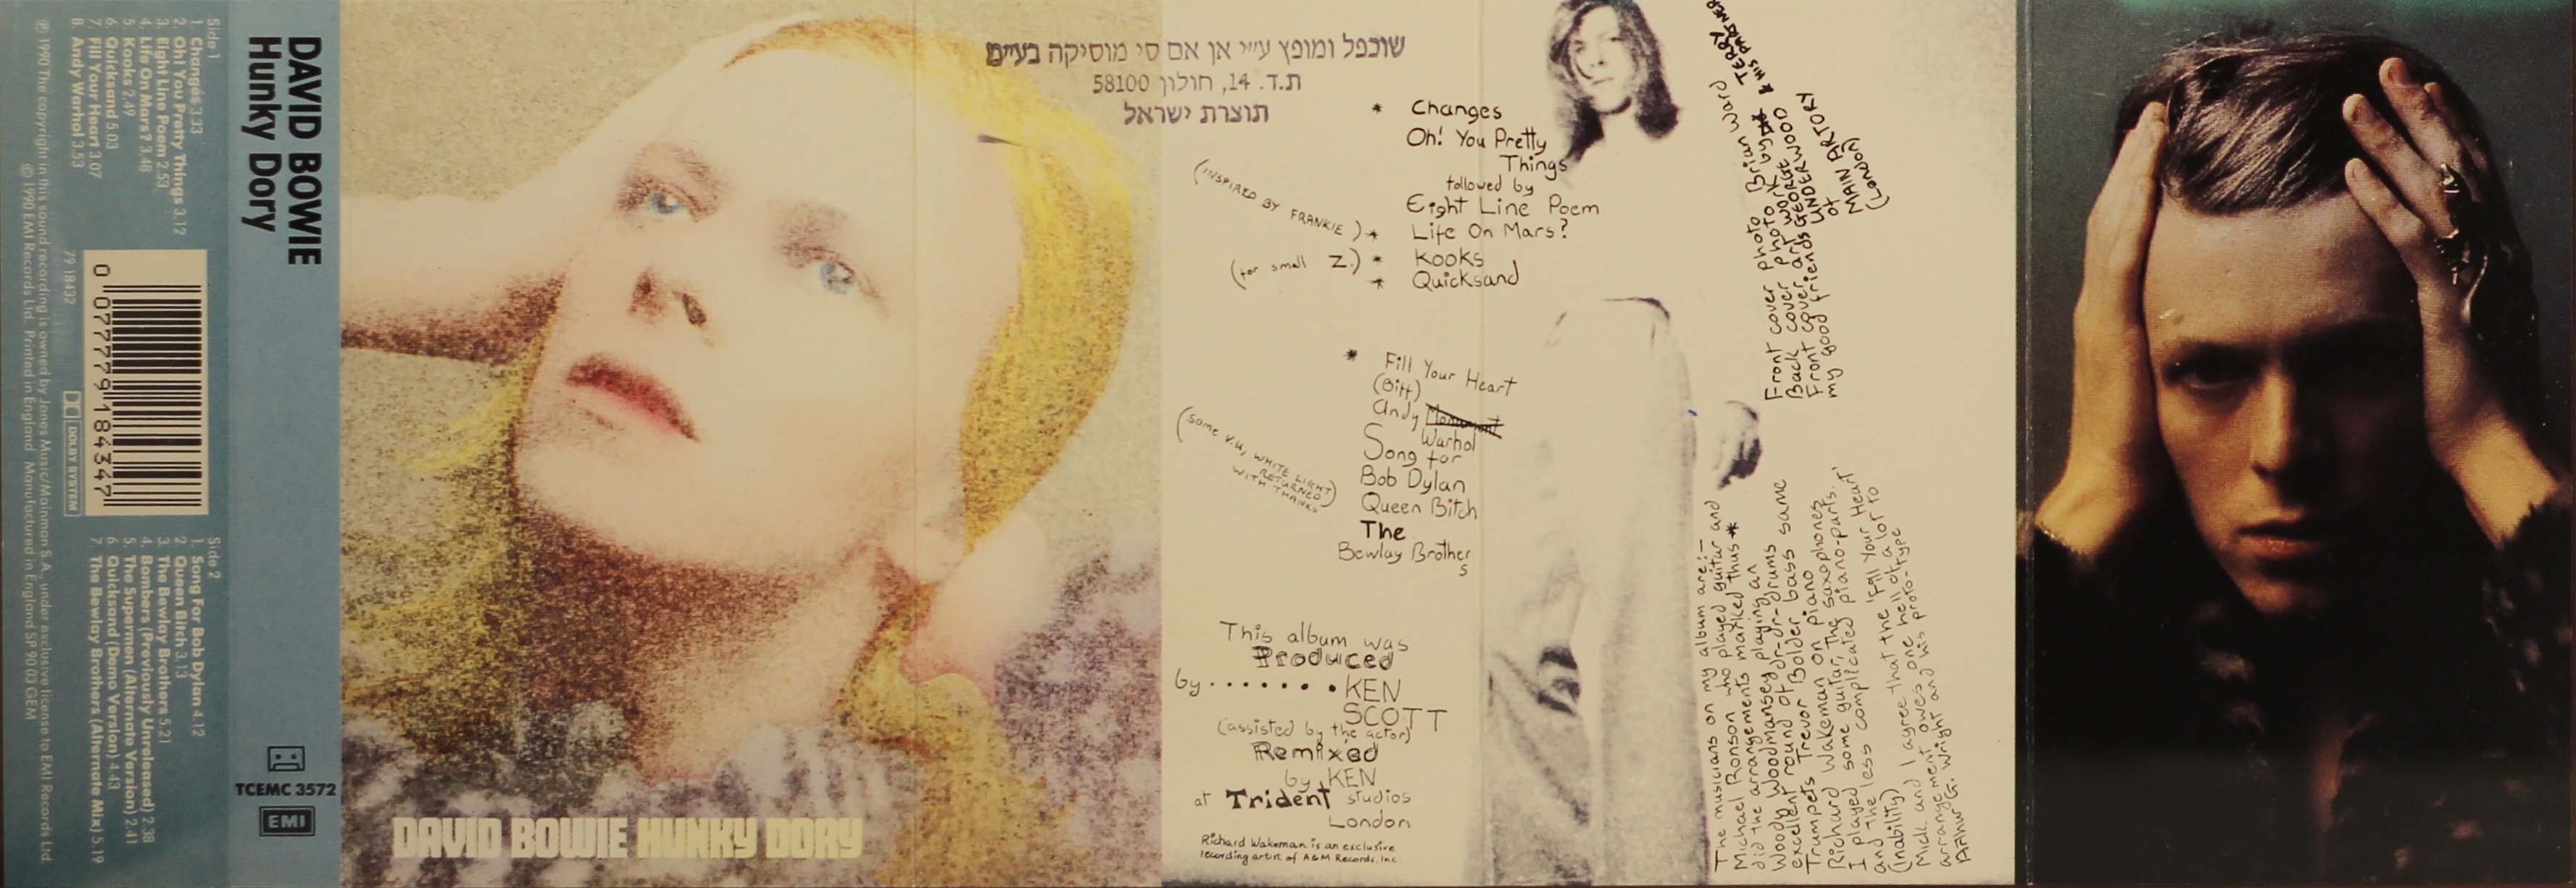 Side 1
1. Changes 3.33
2. Oh! You Pretty Things 3.12
3. Eight Line Poem 2.53
4. Life On Mars? 3.48
5. Kooks 2.49
6. Quicksand 5.03
7. Fill Your Heart 3.07
8. Andy Warhol 3.53
Side 2
1. Song For Bob Dylan 4.12
2. Queen Bitch 3.13
3. The Bewlay Brothers 5.21
4. Bombers (Previously Unreleased) 2.38
5. The Supermen (Alternate Version) 2.41
6. Quicksand (Demo Version) 4.43
7. The Bewlay Brothers (Alternate Mix) 5.19
79 18432
0 077779 184347
DOLBY SYSTEM
℗ 1990 The copyright in this sound recording is owned by Jones Music/Mainman S.A. under exclusive license to EMI Records Ltd.
© 1990 EMI Records Ltd. Printed in England Manufactured in England SP 90 03 GEM
DAVID BOWIE
Hunky Dory
TCEMC 3572
EMI
DAVID BOWIE HUNKY DORY
שוכפל ומופץ ע״י אן אם סי מוסיקה בע״מ
ת.ד. 14, חולון 58100
תוצרת ישראל
* Changes
Oh! You Pretty
Things
followed by
Eight Line Poem
(INSPIRED BY FRANKIE) * Life On Mars?
(for small Z.) * Kooks
* Quicksand
* Fill Your Heart
(Biff)
Andy
Warhol
Song for
Bob Dylan
(some V.U, WHITE LIGHT
RETURNED
WITH THANKS)
Queen Bitch
The
Bewlay Brother
s
This album was
Produced
by ....... KEN
SCOTT
(assisted by the actor)
Remixed
by KEN
at Trident studios
London
Richard Wakeman is an exclusive
recording artist of A&M Records, Inc.
Front cover photo Brian Ward
Back cover photo by
Front cover art work by TERRY
& HIS PARTNER
my good friends GEORGE UNDERWOOD
of
MAIN ARTORY
(London)
The musicians on my album are:-
Michael Ronson who played guitar and
did the arrangements marked thus *
Woody Woodmansey playing an
excellent round of dr-dr-drums same
Trumpets Trevor Bolder bass
Richard Wakeman on piano
I played some guitar, the saxophones
and the less complicated piano-parts.
(inability) I agree that the 'Fill Your Heart'
Mick and owes one hell of a lot to
arrangement and his proto-type
Arthur G. Wright